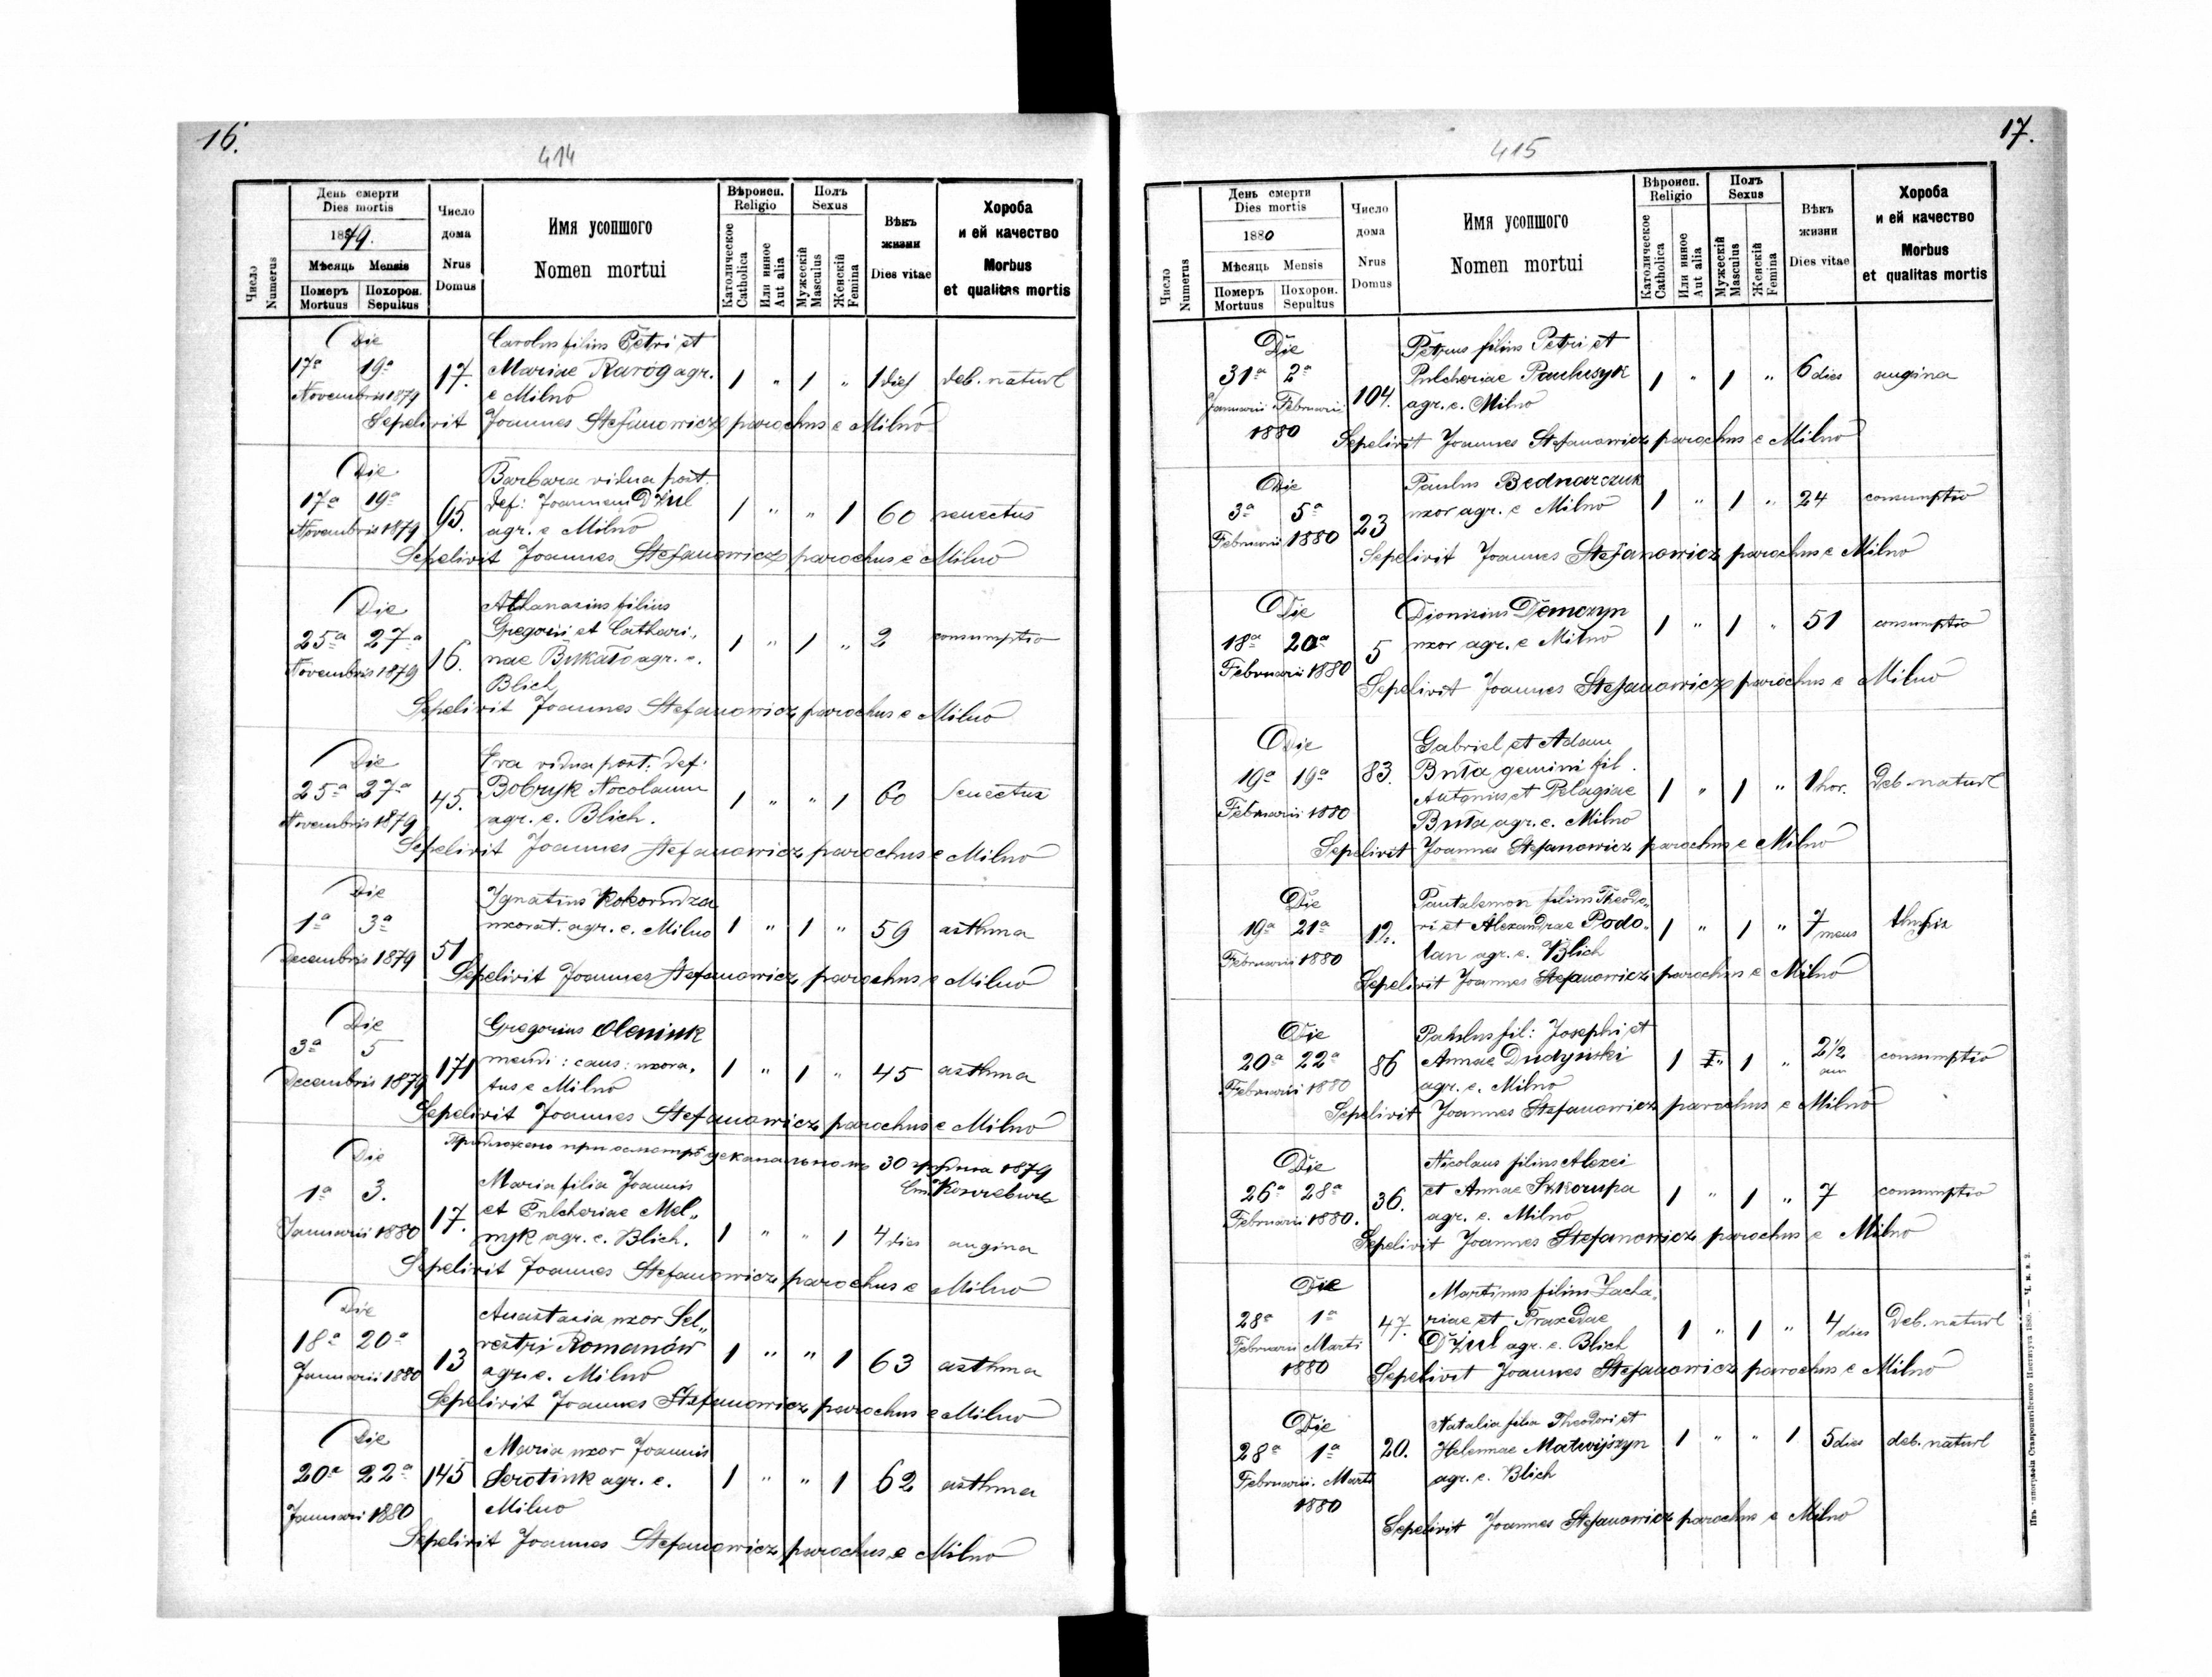 16.
414
День смерти
Dies mortis
1879.
Мѣсяць Mensis
Померъ Похорон.
Mortuus Sepultus
Число
Numerus
Число
дома
Nrus
Domus
Имя усопшого
Nomen mortui
Вѣроисп.
Religio
Католическое
Catholica
Или инное
Aut alia
Полъ
Sexus
Мужескій
Masculus
Женскій
Femina
Вѣкъ
жизни
Dies vitae
Хороба
и ей качество
Morbus
et qualitas mortis
Die
Carolus filius Petri et
17ª 19ª 17. Mariae Raróg agr. 1 " 1 " 1 dies deb. naturl
Novembris 1879 e Milno
Sepelivit Joannes Stefanowicz parochus e Milno
Die
Barbara vidua post.
17ª 19ª 95. def: Joannem Dżul 1 " " 1 60 senectus
Novembris 1879 agr. e Milno
Sepelivit Joannes Stefanowicz parochus e Milno
Die
Athanasius filius
25ª 27ª 16. Gregorii et Cathari„ 1 " 1 " 2 consumptio
Novembris 1879 nae Bukało agr. e.
Blich
Sepelivit Joannes Stefanowicz parochus e Milno
Die
Eva vidua post. def:
25ª 27ª 45. Bobryk Nocolaum 1 " " 1 60 Senectus
Novembris 1879 agr. e. Blich.
Sepelivit Joannes Stefanowicz parochus e Milno
Die
Ignatius Kokorudza
1ª 3ª 51 uxorat. agr. e. Milno 1 " 1 " 59 asthma
Decembris 1879
Sepelivit Joannes Stefanowicz parochus e Milno
Die
Gregorius Oleniuk
3ª 5 171 mendi: caus: uxora„ 1 " 1 " 45 asthma
Decembris 1879 tus e Milno
Sepelivit Joannes Stefanowicz parochus e Milno
30 1879
Die
Maria filia Joannis
1ª 3. 17. et Pulcheriae Mel„
Januarii 1880 nyk agr. e. Blich. 1 " " 1 4 dies angina
Sepelivit Joannes Stefanowicz parochus e Milno
Die
Anastasia uxor Sel„
18ª 20ª 13 vestri Romanów 1 " " 1 63 asthma
Januarii 1880 agr. e. Milno
Sepelivit Joannes Stefanowicz parochus e Milno
Die
Maria uxor Joannis
20ª 22ª 145 Serotiuk agr. e. 1 " " 1 62 asthma
Januari 1880 Milno
Sepelivit Joannes Stefanowicz parochus e Milno
17.
415
День смерти
Dies mortis
1880
Мѣсяць Mensis
Померъ Похорон.
Mortuus Sepultus
Число
Numerus
Число
дома
Nrus
Domus
Имя усопшого
Nomen mortui
Вѣроисп.
Religio
Католическое
Catholica
Или инное
Aut alia
Полъ
Sexus
Мужескій
Masculus
Женскій
Femina
Вѣкъ
жизни
Dies vitae
Хороба
и ей качество
Morbus
et qualitas mortis
Die
Petrus filius Petri et
31ª 2ª 104. Pulcheriae Pauluszyk 1 " 1 " 6 dies angina
Januarii Februarii agr. e. Milno
1880 Sepelivit Joannes Stefanowicz parochus e Milno
Die
Paulus Bednarczuk
3ª 5ª 23 uxor agr. e Milno 1 " 1 " 24 consumptio
Februarii 1880
Sepelivit Joannes Stefanowicz parochus e Milno
Die
Dionisius Demczyn
18ª 20ª 5 uxor agr. e Milno 1 " 1 " 51 consumptio
Februarii 1880
Sepelivit Joannes Stefanowicz parochus e Milno
Die
Gabriel et Adam
19ª 19ª 83. Buła gemini fil.
Februarii 1880 Antonius et Pelagiae 1 " 1 " 1 hor. Deb. naturl
Buła agr. e. Milno
Sepelivit Joannes Stefanowicz parochus e Milno
Die
Pantalemon filius Theodo„
19ª 21ª 12. ri et Alexandrae Podo„ 1 " 1 " 7 mens
Februarii 1880 lan agr. e. Blich
Sepelivit Joannes Stefanowicz parochus e Milno
Die
Paulus fil: Josephi et
20ª 22ª 86 Annae Dudyński 1 " 1 " 2½ ann consumptio
Februarii 1880 agr. e. Milno
Sepelivit Joannes Stefanowicz parochus e Milno
Die
Nicolaus filius Alexei
26ª 28ª 36. et Annae Szkorupa 1 " 1 " 7 consumptio
Februarii 1880. agr. e. Milno
Sepelivit Joannes Stefanowicz parochus e Milno
Die
Martinus filius Zacha„
28ª 1ª 47. riae et Praxedae 1 " 1 " 4 dies Deb. naturl
Februarii Marti Dżul agr. e. Blich
1880 Sepelivit Joannes Stefanowicz parochus e Milno
Die
Natalia filia Theodori et
28ª 1ª 20. Helennae Matwijszyn 1 " " 1 5 dies deb. naturl
Februarii. Marti agr. e. Blich
1880
Sepelivit Joannes Stefanowicz parochus e Milno